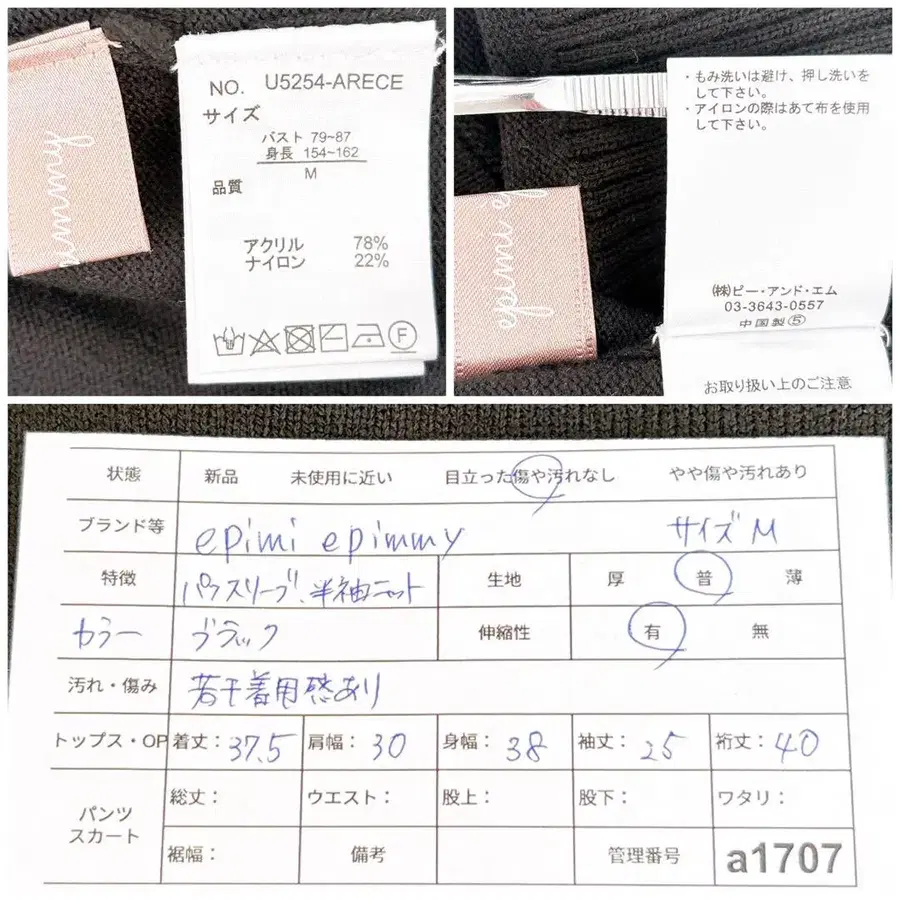 NO. U5254-ARECE
サイズ
バスト 79~87
身長 154~162
M
品質
アクリル 78%
ナイロン 22%
F
・もみ洗いは避け、押し洗いを
して下さい。
・アイロンの際はあて布を使用
して下さい。
㈱ピー・アンド・エム
03-3643-0557
中国製⑤
お取り扱い上のご注意
状態 新品 未使用に近い 目立った傷や汚れなし やや傷や汚れあり
ブランド等 epimi epimmy サイズ M
特徴 パフスリーブ、半袖ニット 生地 厚 普 薄
カラー ブラック 伸縮性 有 無
汚れ・傷み 若干着用感あり
トップス・OP 着丈：37.5 肩幅：30 身幅：38 袖丈：25 裄丈：40
パンツ
スカート
総丈： ウエスト： 股上： 股下： ワタリ：
裾幅： 備考 管理番号 a1707